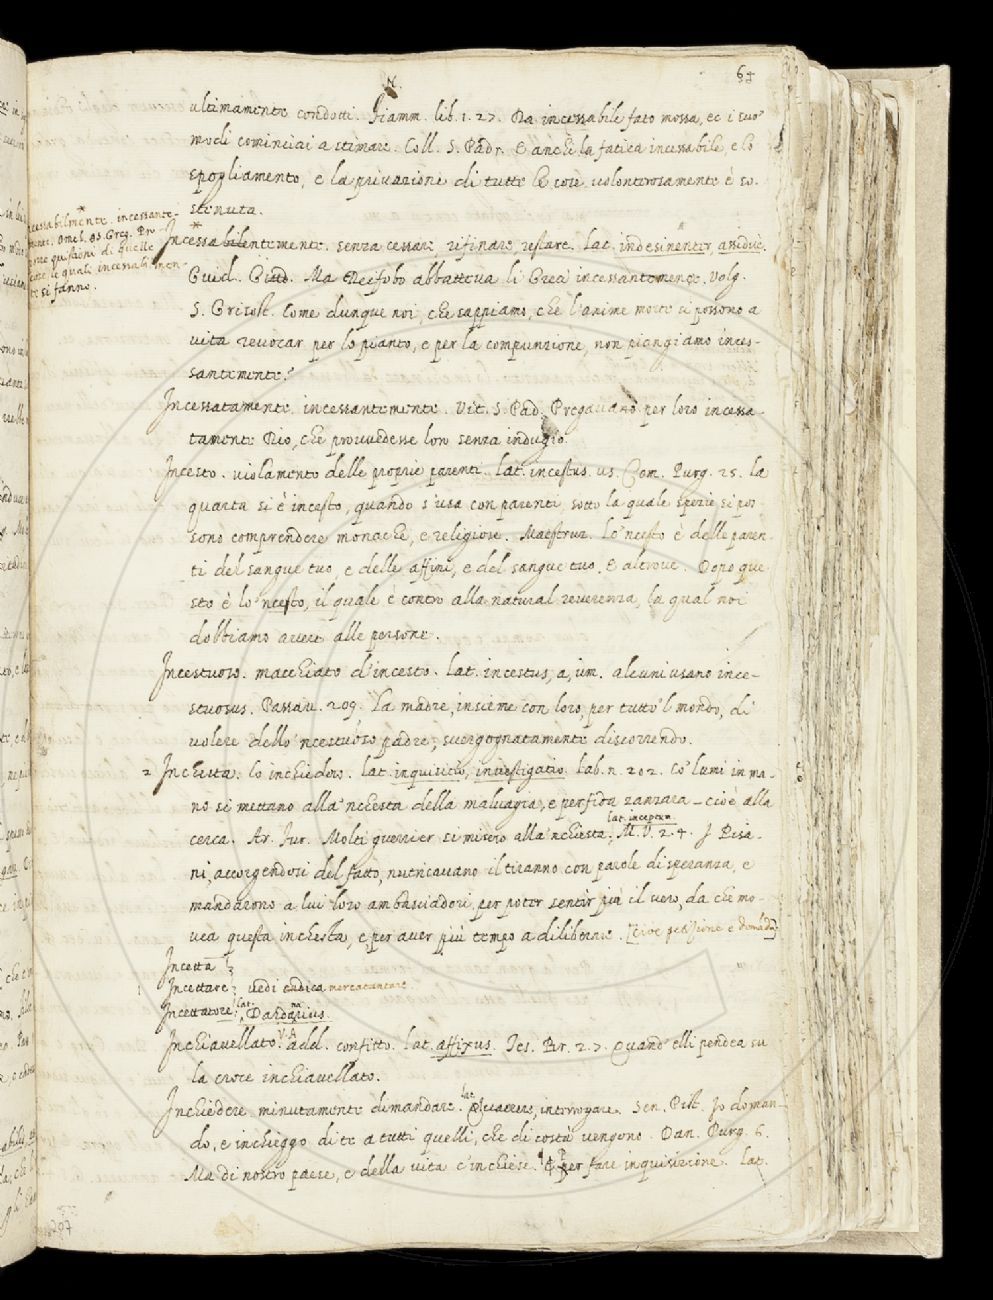 N. 64
ultimamente condotti. Fiamm. lib. 1. 27. Da incessabile fato mossa, ec i suo'
modi cominciai a stimare. Coll. S. Padr. E anche la fatica incessabile, e lo
spogliamento, e la privazione di tutte le cose volonterosamente è so-
stenuta.
Incessabilmente. incessante-
mente. Omel. S. Greg. Pr
quistioni di quelle
le quali incessabilmen-
te si fanno.
Incessantemente. senza cessare, rifinare, restare. Lat. indesinenter, assidue.
Guid. Giud. Ma Deifobo abbatteva li Greci incessantemente. Volg.
S. Grisost. Come dunque noi, che sappiamo, che l'anime morte si possono a
vita revocar per lo pianto, e per la compunzione, non piangiamo inces-
santemente?
Incessatamente. incessantemente. Vit. S. Pad. Pregavano per loro incessa-
tamente Dio, che provvedesse loro senza indugio.
Incesto. violamento delle proprie parenti. lat. incestus. us. Com. Purg. 25. la
quarta si è incesto, quando s'usa con parenti, sotto la quale spezie si pos-
sono comprendere monache, e religiose. Maestruz. Lo 'ncesto è delle paren-
ti del sangue tuo, e delle affini, e del sangue tuo. E altrove. Dopo que-
sto è lo 'ncesto, il quale è contro alla natural reverenza, la qual noi
dobbiamo avere alle persone.
Incestuoso. macchiato d'incesto. Lat. incestus, a, um. alcuni usano ince-
stuosus. Passav. 209. La madre, insieme con loro, per tutto 'l mondo, di
volere dello 'ncestuoso padre, svergognatamente discorrendo.
2 Inchesta. lo inchiedere. Lat. inquisitio, investigatio. Lab. n. 202. Co' lumi in ma-
no si mettano alla 'nchesta della malvagia, e perfida zanzara – cioè alla
cerca. Ar. Fur. Molti guerrier si misero alla 'nchiesta. lat. inceptum M. V. 2. 4. I Pisa-
ni, accorgendosi del fatto, nutricavano il tiranno con parole di speranza, e
mandarono a lui loro ambasciadori, per poter sentir più il vero, da che mo-
vea questa inchesta, e per aver più tempo a diliberare. [cioè petizione e domāda]
Incetta
Incettare vedi endica mercatantare.
Incettatore lat. Dardanarius.
Inchiavellato. V. A. add. confitto. Lat. affixus. Tes. Br. 2. 7. Quand'elli pendea su
la croce inchiavellato.
Inchiedere minutamente dimandare. lat. Quaerere, interrogare. Sen. Pist. Io doman-
do, e incheggo di te a tutti quelli, che di costà vengono. Dan. Purg. 6.
Ma di nostro paese, e della vita c'inchiese. per fare inquisizione. Lat.